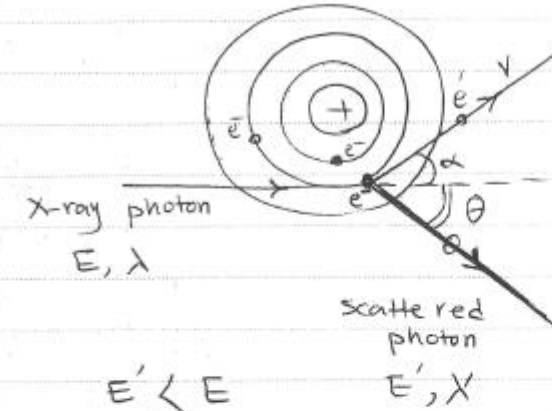 +
e⁻
e⁻
e⁻
e⁻
V
α
θ
X-ray photon
E, λ
scattered
photon
E' < E
E', λ'